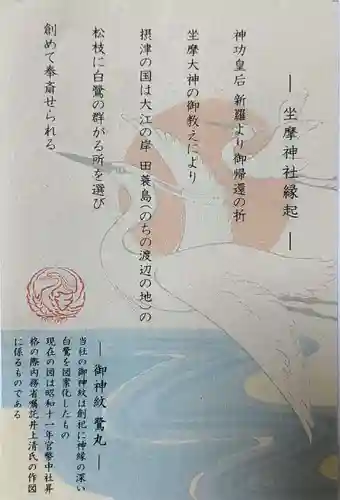 ― 坐摩神社縁起 ―
神功皇后 新羅より御帰還の折
坐摩大神の御教えにより
摂津の国は大江の岸 田蓑島(のちの渡辺の地)の
松枝に白鷺の群がる所を選び
創めて奉斎せられる
― 御神紋 鷺丸 ―
当社の御神紋は創祀に神縁の深い
白鷺を図案化したもの
現在の図は昭和十一年官幣中社昇
格の際内務省嘱託井上清氏の作図
に係るものである